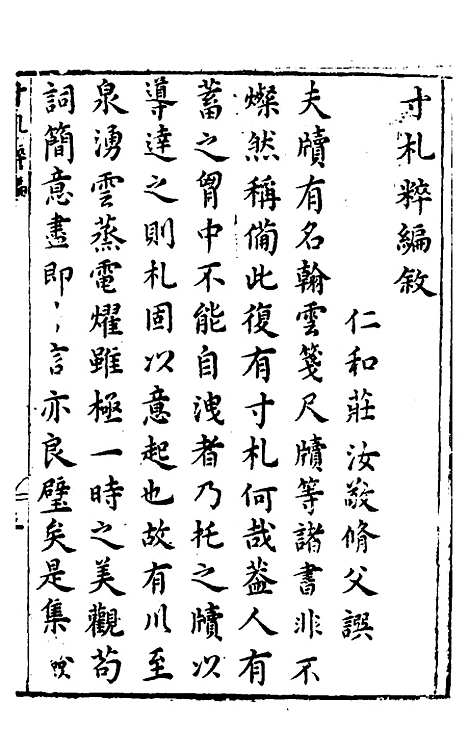 寸札粹編敘
仁和莊汝敬脩父譔
夫牘有名翰雲箋尺牘等諸書非不
燦然稱備此復有寸札何哉葢人有
蓄之胷中不能自洩者乃托之牘以
導達之則札固以意起也故有川至
泉湧雲蒸電燿雖極一時之美觀苟
詞簡意盡即〻言亦良璧矣是集
寸札粹編